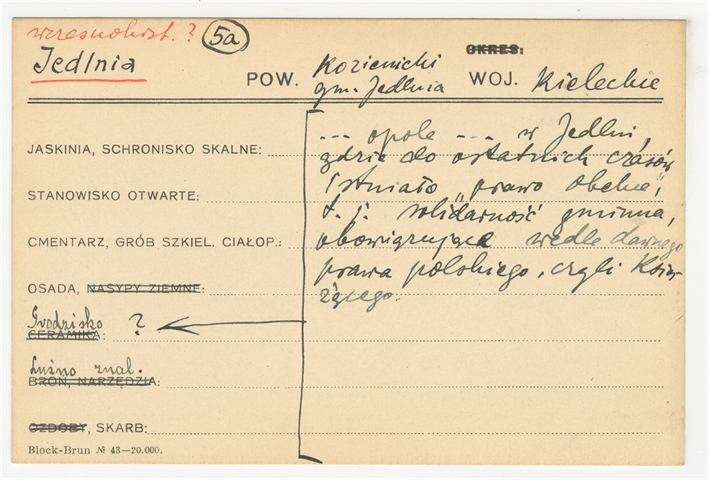 wczesnohist. ? 5a
Jedlnia
POW. Kozienicki
gm. Jedlnia
OKRES:
WOJ. Kieleckie
JASKINIA, SCHRONISKO SKALNE:
STANOWISKO OTWARTE:
CMENTARZ, GRÓB SZKIEL. CIAŁOP.:
OSADA, NASYPY ZIEMNE:
Grodzisko ?
CERAMIKA:
Luźno znal.
BROŃ, NARZĘDZIA:
OZDOBY, SKARB:
--- opole --- w Jedlni,
gdzie do ostatnich czasów
istniało „prawo obelne",
t. j. solidarność gminna,
obowiązująca wedle dawnego
prawa polskiego, czyli Książ-
ęcego.
Block-Brun № 43—20.000.